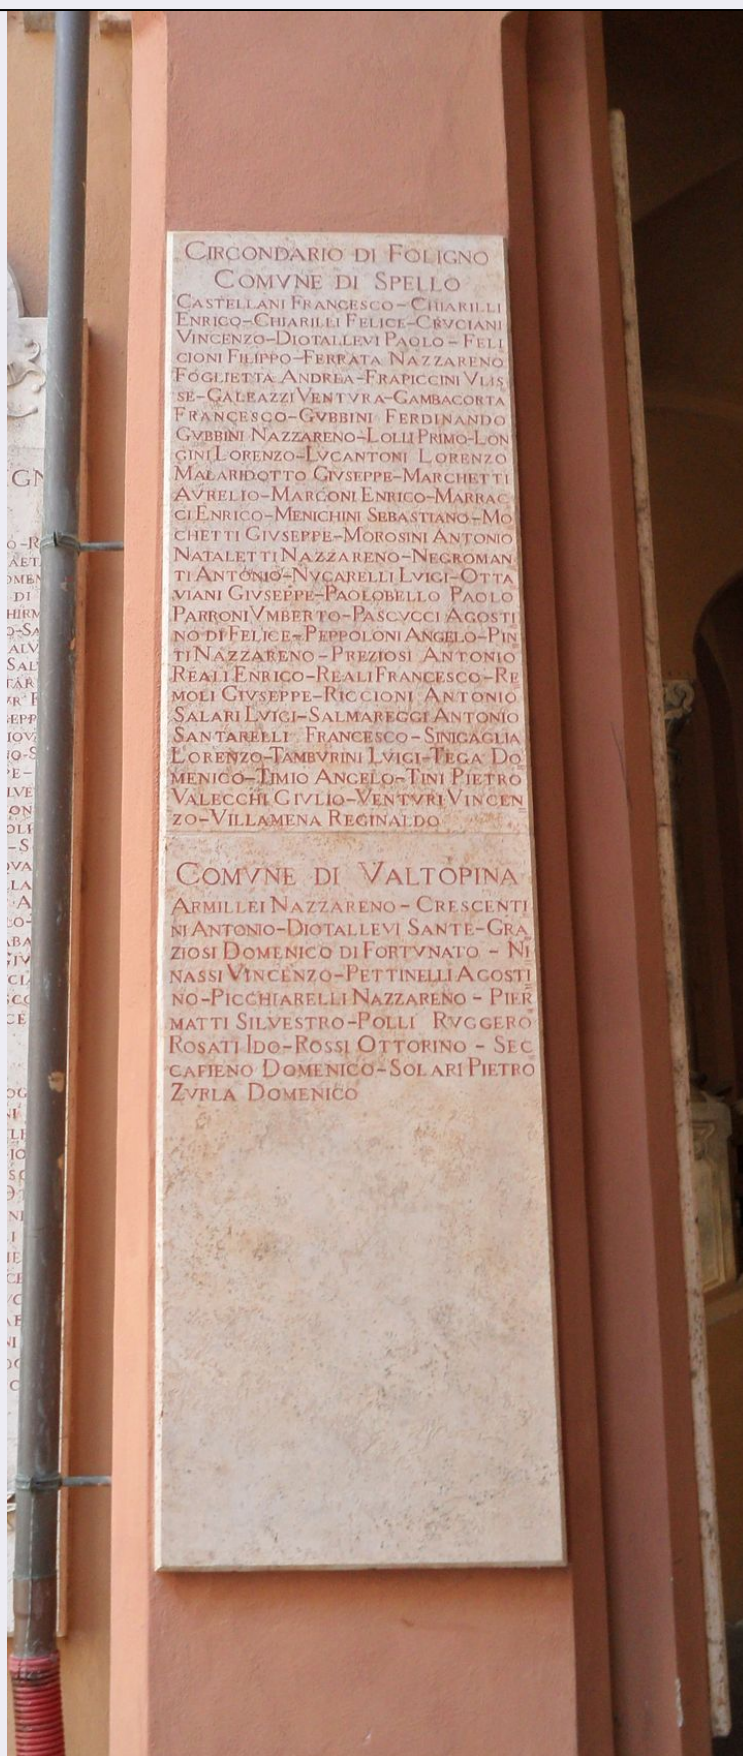 CIRCONDARIO DI FOLIGNO
COMVNE DI SPELLO
CASTELLANI FRANCESCO-CHIARILLI
ENRICO-CHIARILLI FELICE-CRVCIANI
VINCENZO-DIOTALLEVI PAOLO-FELI
CIONI FILIPPO-FERRATA NAZZARENO
FOGLIETTA ANDREA-FRAPICCINI VLIS
SE-GALEAZZI VENTVRA-GAMBACORTA
FRANCESCO-GVBBINI FERDINANDO
GVBBINI NAZZARENO-LOLLI PRIMO-LON
GINI LORENZO-LVCANTONI LORENZO
MALARIDOTTO GIVSEPPE-MARCHETTI
AVRELIO-MARCONI ENRICO-MARRAC
CI ENRICO-MENICHINI SEBASTIANO-MO
CHETTI GIVSEPPE-MOROSINI ANTONIO
NATALETTI NAZZARENO-NEGROMAN
TI ANTONIO-NVCARELLI LVIGI-OTTA
VIANI GIVSEPPE-PAOLOBELLO PAOLO
PARRONI VMBERTO-PASCVCCI AGOSTI
NO DI FELICE-PEPPOLONI ANGELO-PIN
TI NAZZARENO-PREZIOSI ANTONIO
REALI ENRICO-REALI FRANCESCO-RE
MOLI GIVSEPPE-RICCIONI ANTONIO
SALARI LVIGI-SALMAREGGI ANTONIO
SANTARELLI FRANCESCO-SINIGAGLIA
LORENZO-TAMBVRINI LVIGI-TEGA DO
MENICO-TIMIO ANGELO-TINI PIETRO
VALECCHI GIVLIO-VENTVRI VINCEN
ZO-VILLAMENA REGINALDO
COMVNE DI VALTOPINA
ARMILLEI NAZZARENO-CRESCENTI
NI ANTONIO-DIOTALLEVI SANTE-GRA
ZIOSI DOMENICO DI FORTVNATO-NI
NASSI VINCENZO-PETTINELLI AGOSTI
NO-PICCHIARELLI NAZZARENO-PIER
MATTI SILVESTRO-POLLI RVGGERO
ROSATI IDO-ROSSI OTTORINO-SEC
CAFIENO DOMENICO-SOLARI PIETRO
ZVRLA DOMENICO